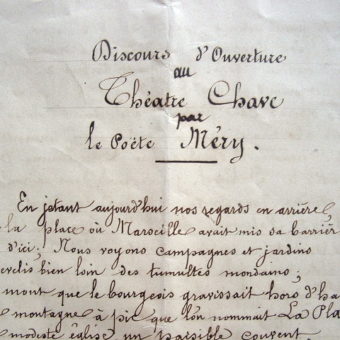 Discours d'Ouverture
au
Théâtre Chave
par
le Poëte Méry.
En jetant aujourd'hui nos regards en arrière,
la place où Marseille avait mis sa barrièr
d'ici; Nous voyons campagnes et jardins
verdis bien loin des tumultes mondains;
mont que le bourgeois gravissait hors d'ha
montagne à pic que l'on nommait La Pla
modeste église un paisible couvent